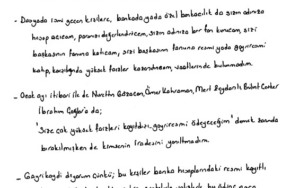 - Dosyada ismi geçen kişilere, bankada yada özel bankacılık da sizin adınıza
hesap açıcam, paranızı değerlendiricem, sizin adınıza bir fon kurucam, sizi
başkasının fonuna katıcam, sizi başkasının fonuna resmi yada gayriresmi
katıp, karşılığında yüksek faizler kazandırıcam, vaatlerinde bulunmadım.
- Ocak ayı itibari ile de Nurettin Gözaçan, Ömer Kahraman, Mert Aydın, Bülent
İbrahim da;
"Size çok yüksek faizleri kayıtdışı, gayriresmi ödeyeceğim" demek suretiyle
bırakılmışken de kimsenin iradesini yanıltmadım.
- Gayri kaydi diyorum çünkü; bu kişiler banka hesaplarındaki resmi kayıtlı